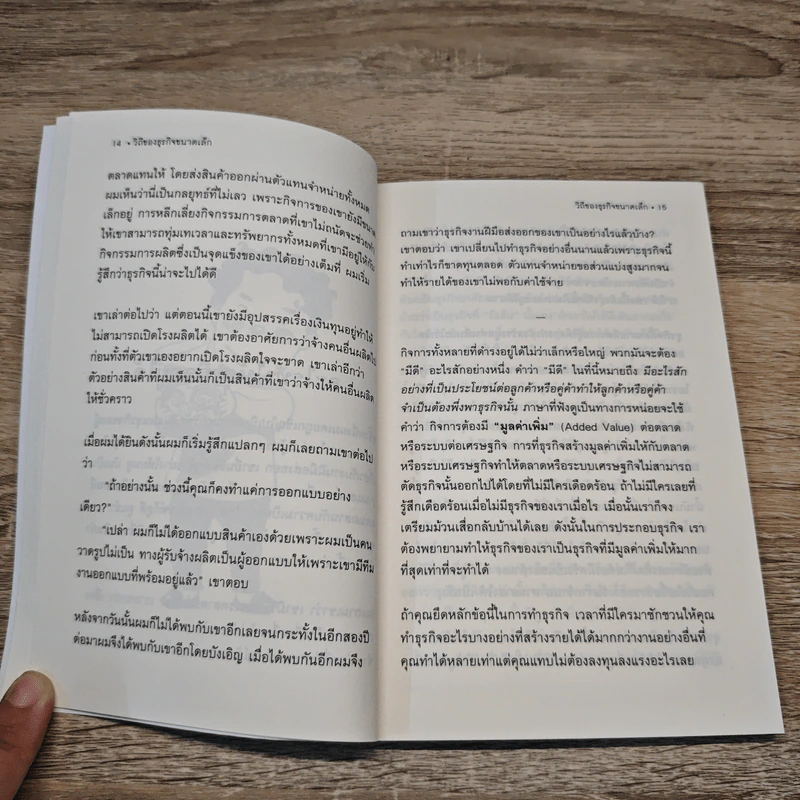 14 • วิถีของธุรกิจขนาดเล็ก
ตลาดแทนให้ โดยส่งสินค้าออกผ่านตัวแทนจำหน่ายทั้งหมด
ผมเห็นว่านี่เป็นกลยุทธ์ที่ไม่เลว เพราะกิจการของเขายังมีขนาด
เล็กอยู่ การหลีกเลี่ยงกิจกรรมการตลาดที่เขาไม่ถนัดจะช่วยทำ
ให้เขาสามารถทุ่มเทเวลาและทรัพยากรทั้งหมดที่เขามีอยู่ให้กับ
กิจกรรมการผลิตซึ่งเป็นจุดแข็งของเขาได้อย่างเต็มที่ ผมเริ่ม
รู้สึกว่าธุรกิจนี้น่าจะไปได้ดี
เขาเล่าต่อไปว่า แต่ตอนนี้เขายังมีอุปสรรคเรื่องเงินทุนอยู่ทำให้
ไม่สามารถเปิดโรงผลิตได้ เขาต้องอาศัยการว่าจ้างคนอื่นผลิตไป
ก่อนทั้งที่ตัวเขาเองอยากเปิดโรงผลิตใจจะขาด เขาเล่าอีกว่า
ตัวอย่างสินค้าที่ผมเห็นนั้นก็เป็นสินค้าที่เขาว่าจ้างให้คนอื่นผลิต
ให้ชั่วคราว
เมื่อผมได้ยินดังนั้นผมก็เริ่มรู้สึกแปลกๆ ผมก็เลยถามเขาต่อไป
ว่า
"ถ้าอย่างนั้น ช่วงนี้คุณก็คงทำแค่การออกแบบอย่าง
เดียว?"
"เปล่า ผมก็ไม่ได้ออกแบบสินค้าเองด้วยเพราะผมเป็นคน
วาดรูปไม่เป็น ทางผู้รับจ้างผลิตเป็นผู้ออกแบบให้เพราะเขามีทีม
งานออกแบบที่พร้อมอยู่แล้ว" เขาตอบ
หลังจากวันนั้นผมก็ไม่ได้พบกับเขาอีกเลยจนกระทั่งในอีกสองปี
ต่อมาผมจึงได้พบกับเขาอีกโดยบังเอิญ เมื่อได้พบกันอีกผมจึง
วิถีของธุรกิจขนาดเล็ก • 15
ถามเขาว่าธุรกิจงานฝีมือส่งออกของเขาเป็นอย่างไรแล้วบ้าง?
เขาตอบว่า เขาเปลี่ยนไปทำธุรกิจอย่างอื่นนานแล้วเพราะธุรกิจนี้
ทำเท่าไรก็ขาดทุนตลอด ตัวแทนจำหน่ายขอส่วนแบ่งสูงมากจน
ทำให้รายได้ของเขาไม่พอกับค่าใช้จ่าย
—
กิจการทั้งหลายที่ดำรงอยู่ได้ไม่ว่าเล็กหรือใหญ่ พวกมันจะต้อง
"มีดี" อะไรสักอย่างหนึ่ง คำว่า "มีดี" ในที่นี้หมายถึง มีอะไรสัก
อย่างที่เป็นประโยชน์ต่อลูกค้าหรือคู่ค้าทำให้ลูกค้าหรือคู่ค้า
จำเป็นต้องพึ่งพาธุรกิจนั้น ภาษาที่ฟังดูเป็นทางการหน่อยจะใช้
คำว่า กิจการต้องมี "มูลค่าเพิ่ม" (Added Value) ต่อตลาด
หรือระบบต่อเศรษฐกิจ การที่ธุรกิจสร้างมูลค่าเพิ่มให้กับตลาด
หรือระบบเศรษฐกิจทำให้ตลาดหรือระบบเศรษฐกิจไม่สามารถ
ตัดธุรกิจนั้นออกไปได้โดยที่ไม่มีใครเดือดร้อน ถ้าไม่มีใครเลยที่
รู้สึกเดือดร้อนเมื่อไม่มีธุรกิจของเราเมื่อไร เมื่อนั้นเราก็จง
เตรียมม้วนเสื่อกลับบ้านได้เลย ดังนั้นในการประกอบธุรกิจ เรา
ต้องพยายามทำให้ธุรกิจของเราเป็นธุรกิจที่มีมูลค่าเพิ่มให้มาก
ที่สุดเท่าที่จะทำได้
ถ้าคุณยึดหลักข้อนี้ในการทำธุรกิจ เวลาที่มีใครมาชักชวนให้คุณ
ทำธุรกิจอะไรบางอย่างที่สร้างรายได้ได้มากกว่างานอย่างอื่นที่
คุณทำได้หลายเท่าแต่คุณแทบไม่ต้องลงทุนลงแรงอะไรเลย